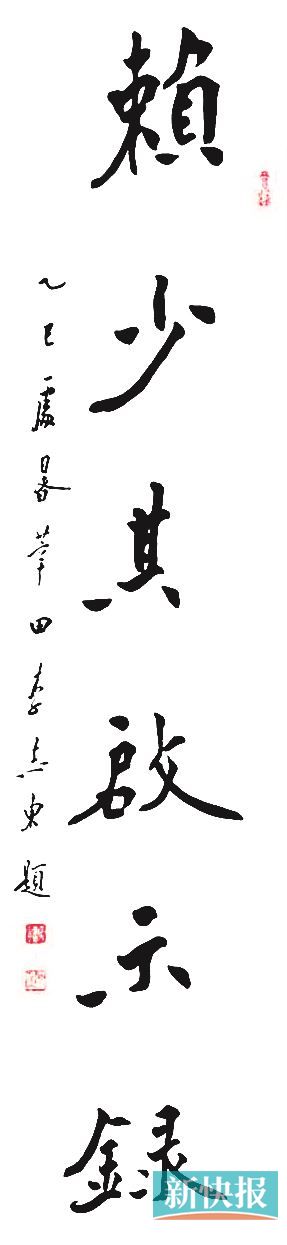 賴少其啟示錄
乙巳處暑莘田李志東題
新快报